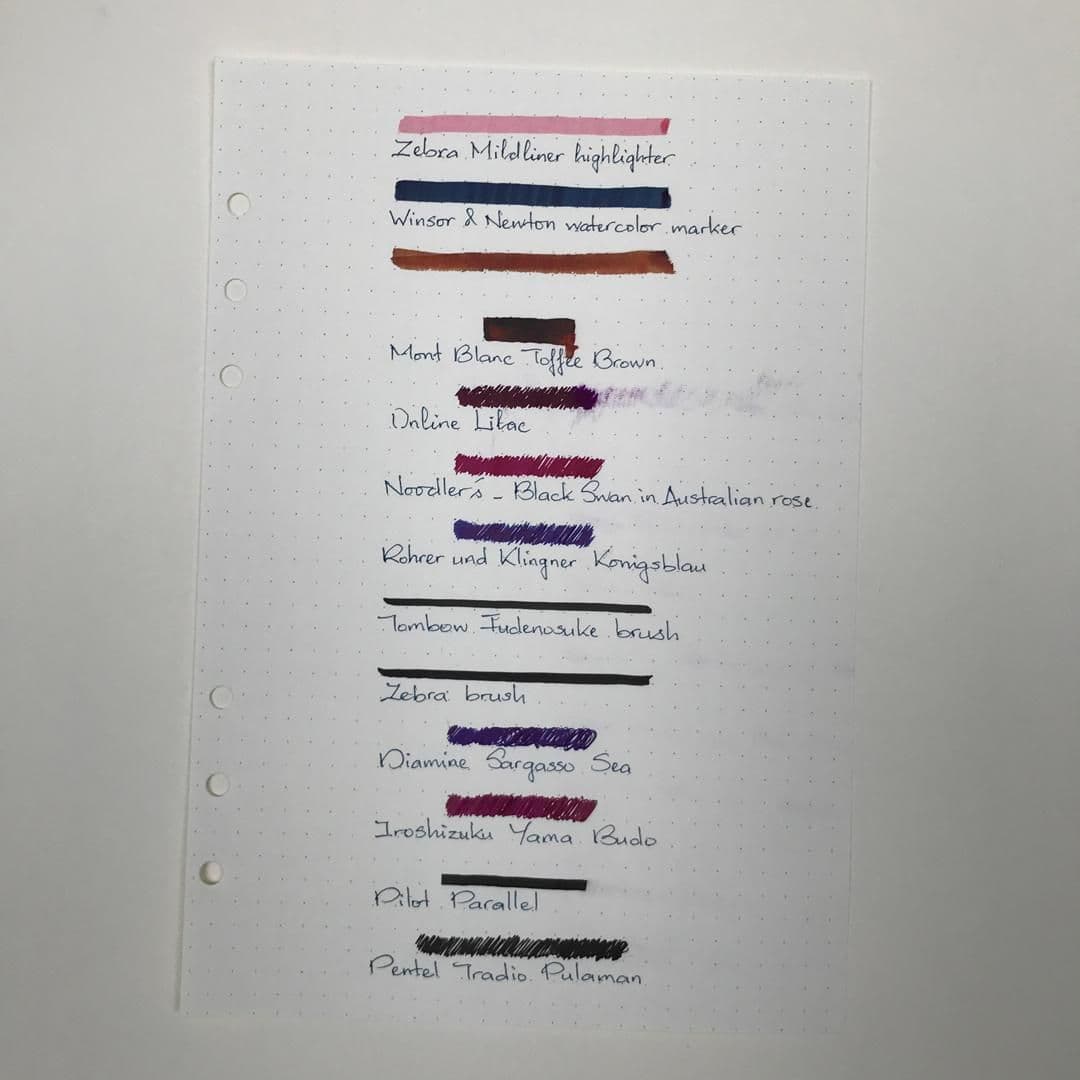 Zebra Mildliner highlighter
Winsor & Newton watercolor marker
Mont Blanc Toffee Brown
Online Lilac
Noodler's - Black Swan in Australian rose
Rohrer und Klingner Königsblau
Tombow Fudenosuke brush
Zebra brush
Diamine Sargasso Sea
Iroshizuku Yama Budo
Pilot Parallel
Pentel Tradio Pulaman